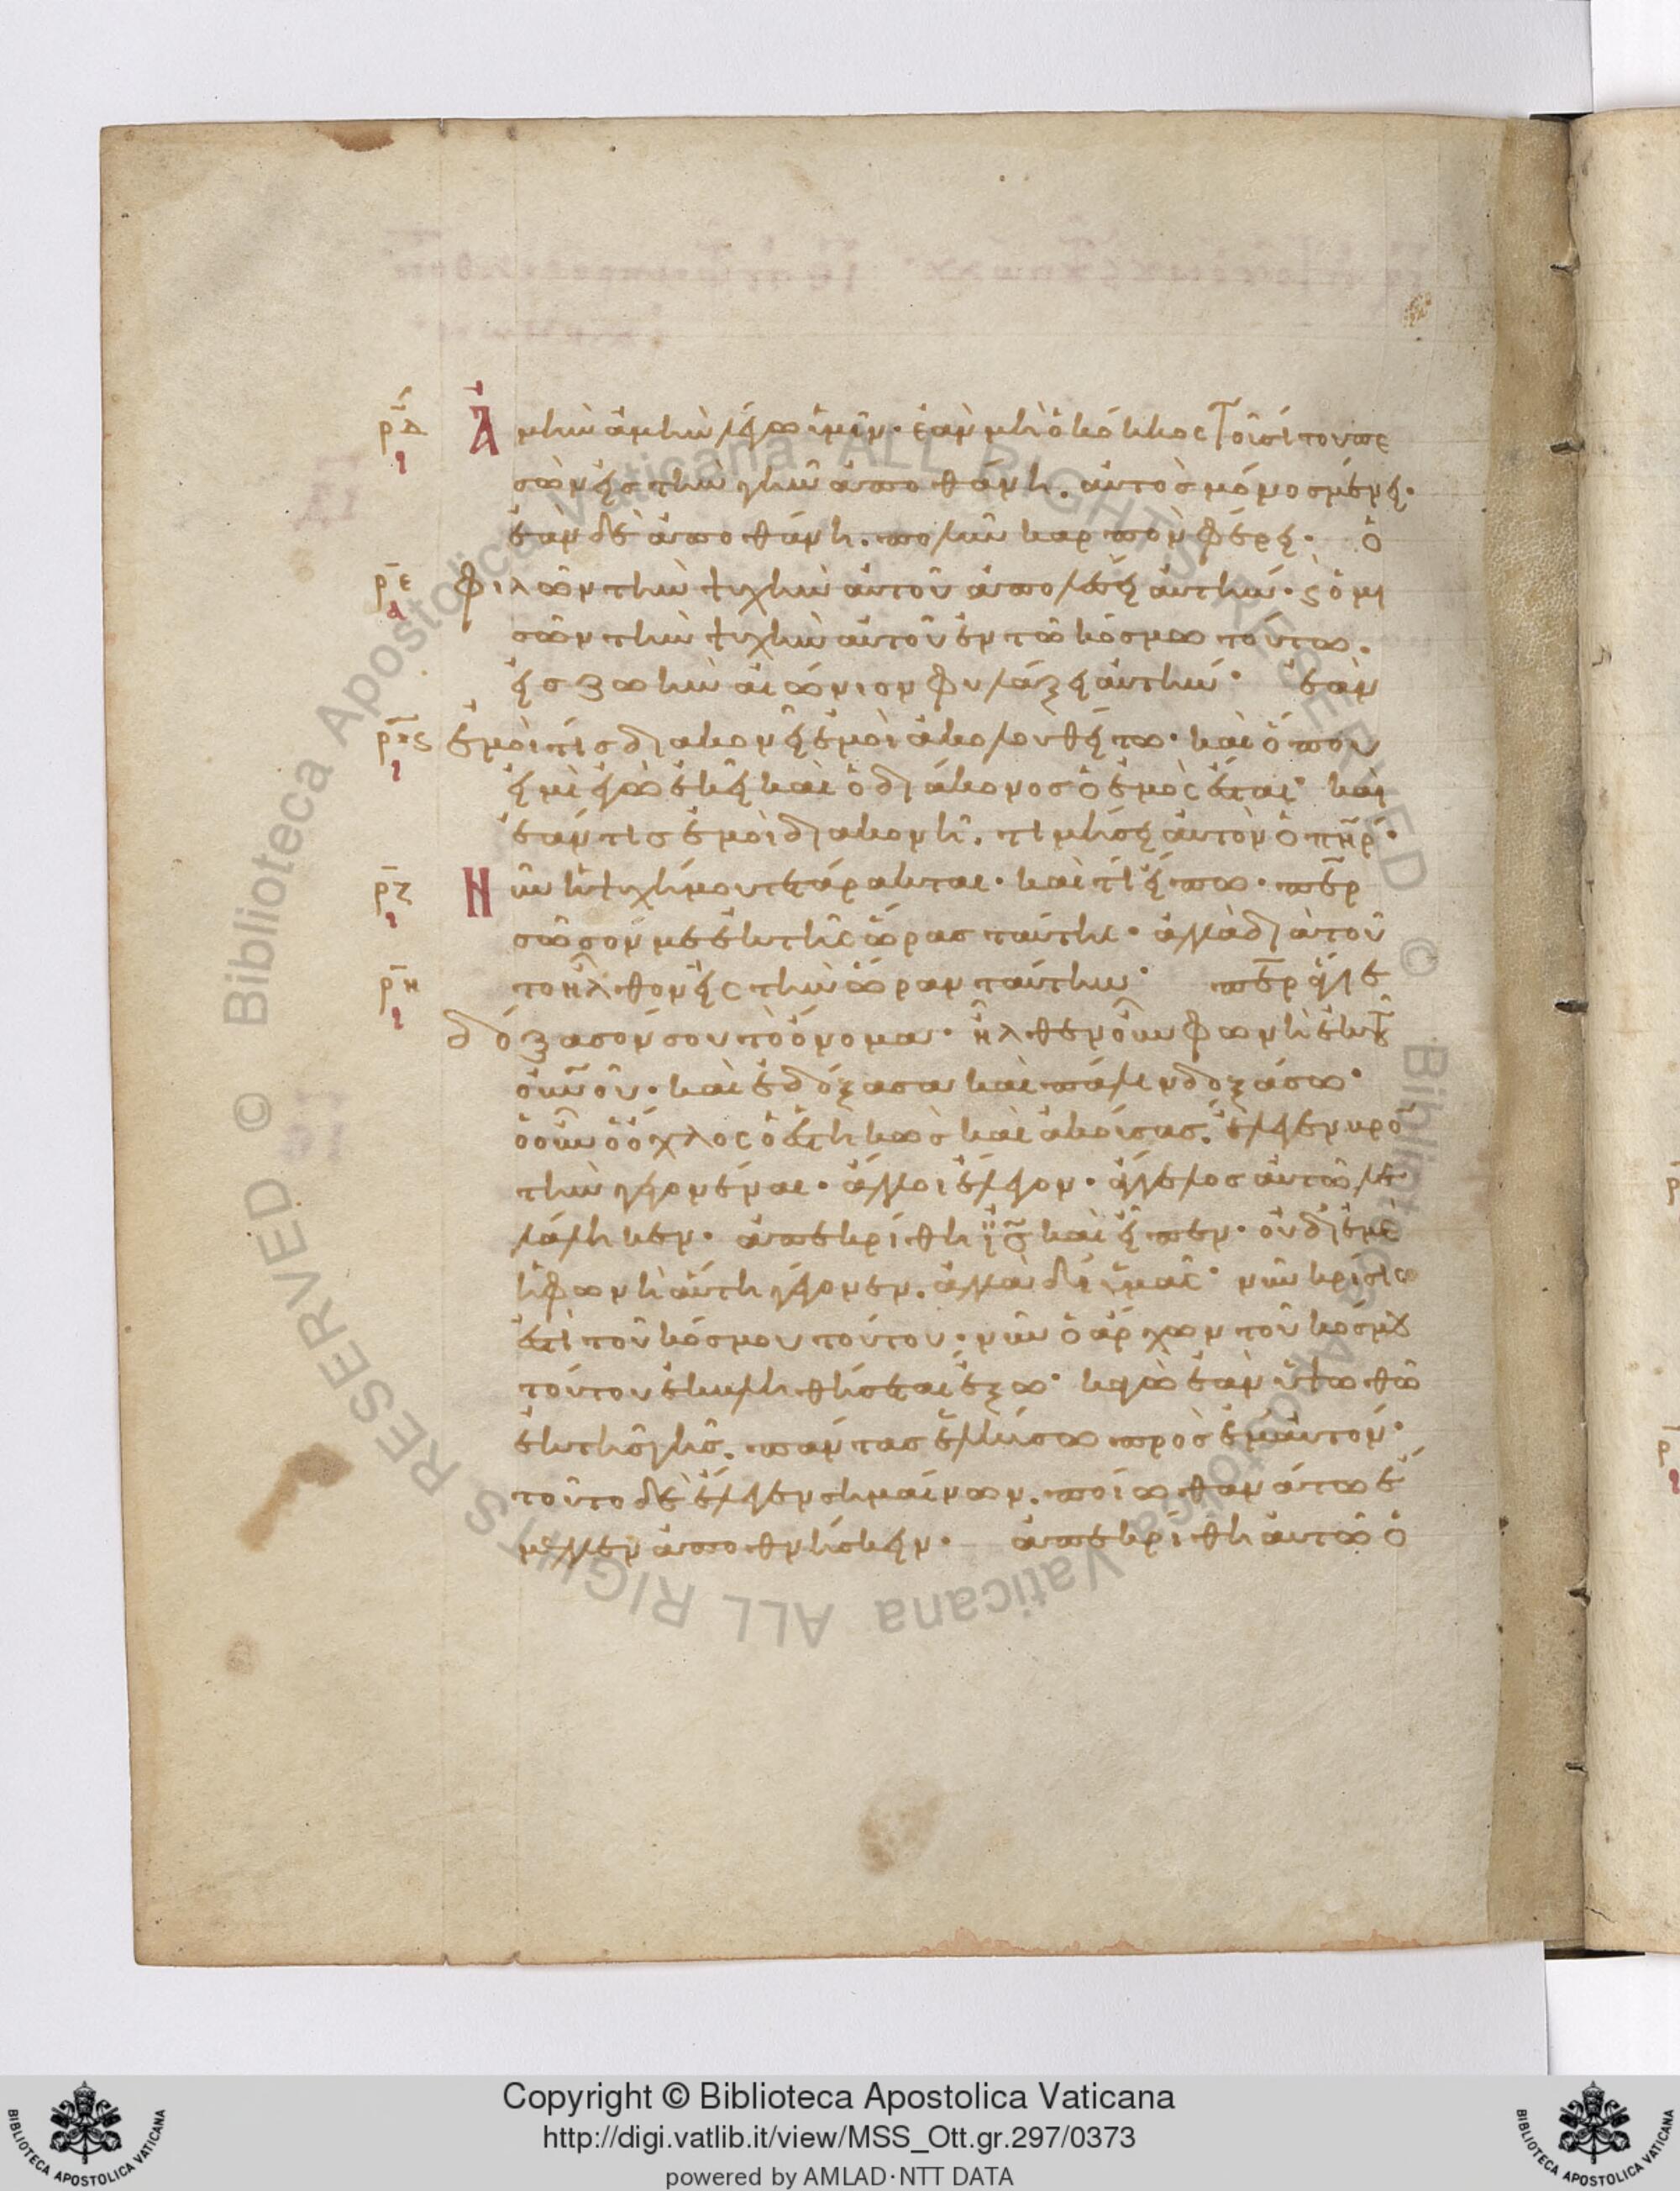 ρ̅δ Ἀμὴν ἀμὴν λέγω ὑμῖν· ἐὰν μὴ ὁ κόκκος τοῦ σίτου πε
σὼν εἰς τὴν γῆν ἀποθάνη. αὐτὸς μόνος μένει·
ἐὰν δὲ ἀποθάνη. πολὺν καρπὸν φέρει· ὁ
ρ̅ε φιλῶν τὴν ψυχὴν αὐτοῦ ἀπολέσει αὐτήν· ϗ ὁ μι
σῶν τὴν ψυχὴν αὐτοῦ ἐν τῶ κόσμω τούτω.
εἰς ζωὴν αἰώνιον φυλάξει αὐτήν· ἐὰν
ρ̅ς ἐμοί τις διακονεῖ ἐμοὶ ἀκολουθείτω· καὶ ὅπου
εἰμὶ ἐγὼ ἐκεῖ καὶ ὁ διάκονος ὁ ἐμὸς ἔσται· καὶ
ἐάν τις ἐμοὶ διακονῆ. τιμήσει αὐτὸν ὁ π̅η̅ρ·
ρ̅ζ Νῦν ἡ ψυχή μου τετάρακται· καὶ τί εἴπω· π̅ε̅ρ
σῶσόν με ἐκ τῆς ὥρας ταύτης· ἀλλὰ διὰ τοῦ
ρ̅η το ἦλθον εἰς τὴν ὥραν ταύτην· π̅ε̅ρ ἅγιε
δόξασόν σου τὸ ὄνομα· ἦλθεν οὖν φωνὴ ἐκ τοῦ
ο̅υ̅ν̅οῦ· καὶ ἐδόξασα καὶ πάλιν δοξάσω·
ὁ οὖν ὄχλος ὁ ἑστηκὼς καὶ ἀκούσας. ἔλεγεν βρο
τὴν γεγονέναι· ἄλλοι ἔλεγον· ἄγγελος αὐτῶ λε
λάληκεν· ἀπεκρίθη ι̅ς̅ καὶ εἶπεν· οὐ δι' ἐμὲ
ἡ φωνὴ αὕτη γέγονεν. ἀλλὰ δι' ὑμᾶς· νῦν κρίσις
ἐστὶ τοῦ κόσμου τούτου· νῦν ὁ ἄρχων τοῦ κόσμου
τούτου ἐκβληθήσεται ἔξω· κἀγὼ ἐὰν ὑψωθῶ
ἐκ τῆς γῆς. πάντας ἑλκύσω πρὸς ἐμαυτόν·
τοῦτο δὲ ἔλεγεν σημαίνων. ποίω θανάτω ἔ
μελλεν ἀποθνήσκειν· ἀπεκρίθη αὐτῶ ὁ
© Biblioteca Apostolica Vaticana ALL RIGHTS RESERVED © Biblioteca Apostolica Vaticana ALL RIGHTS RESERVED
Copyright © Biblioteca Apostolica Vaticana
http://digi.vatlib.it/view/MSS_Ott.gr.297/0373
powered by AMLAD·NTT DATA
BIBLIOTECA APOSTOLICA VATICANA
BIBLIOTECA APOSTOLICA VATICANA